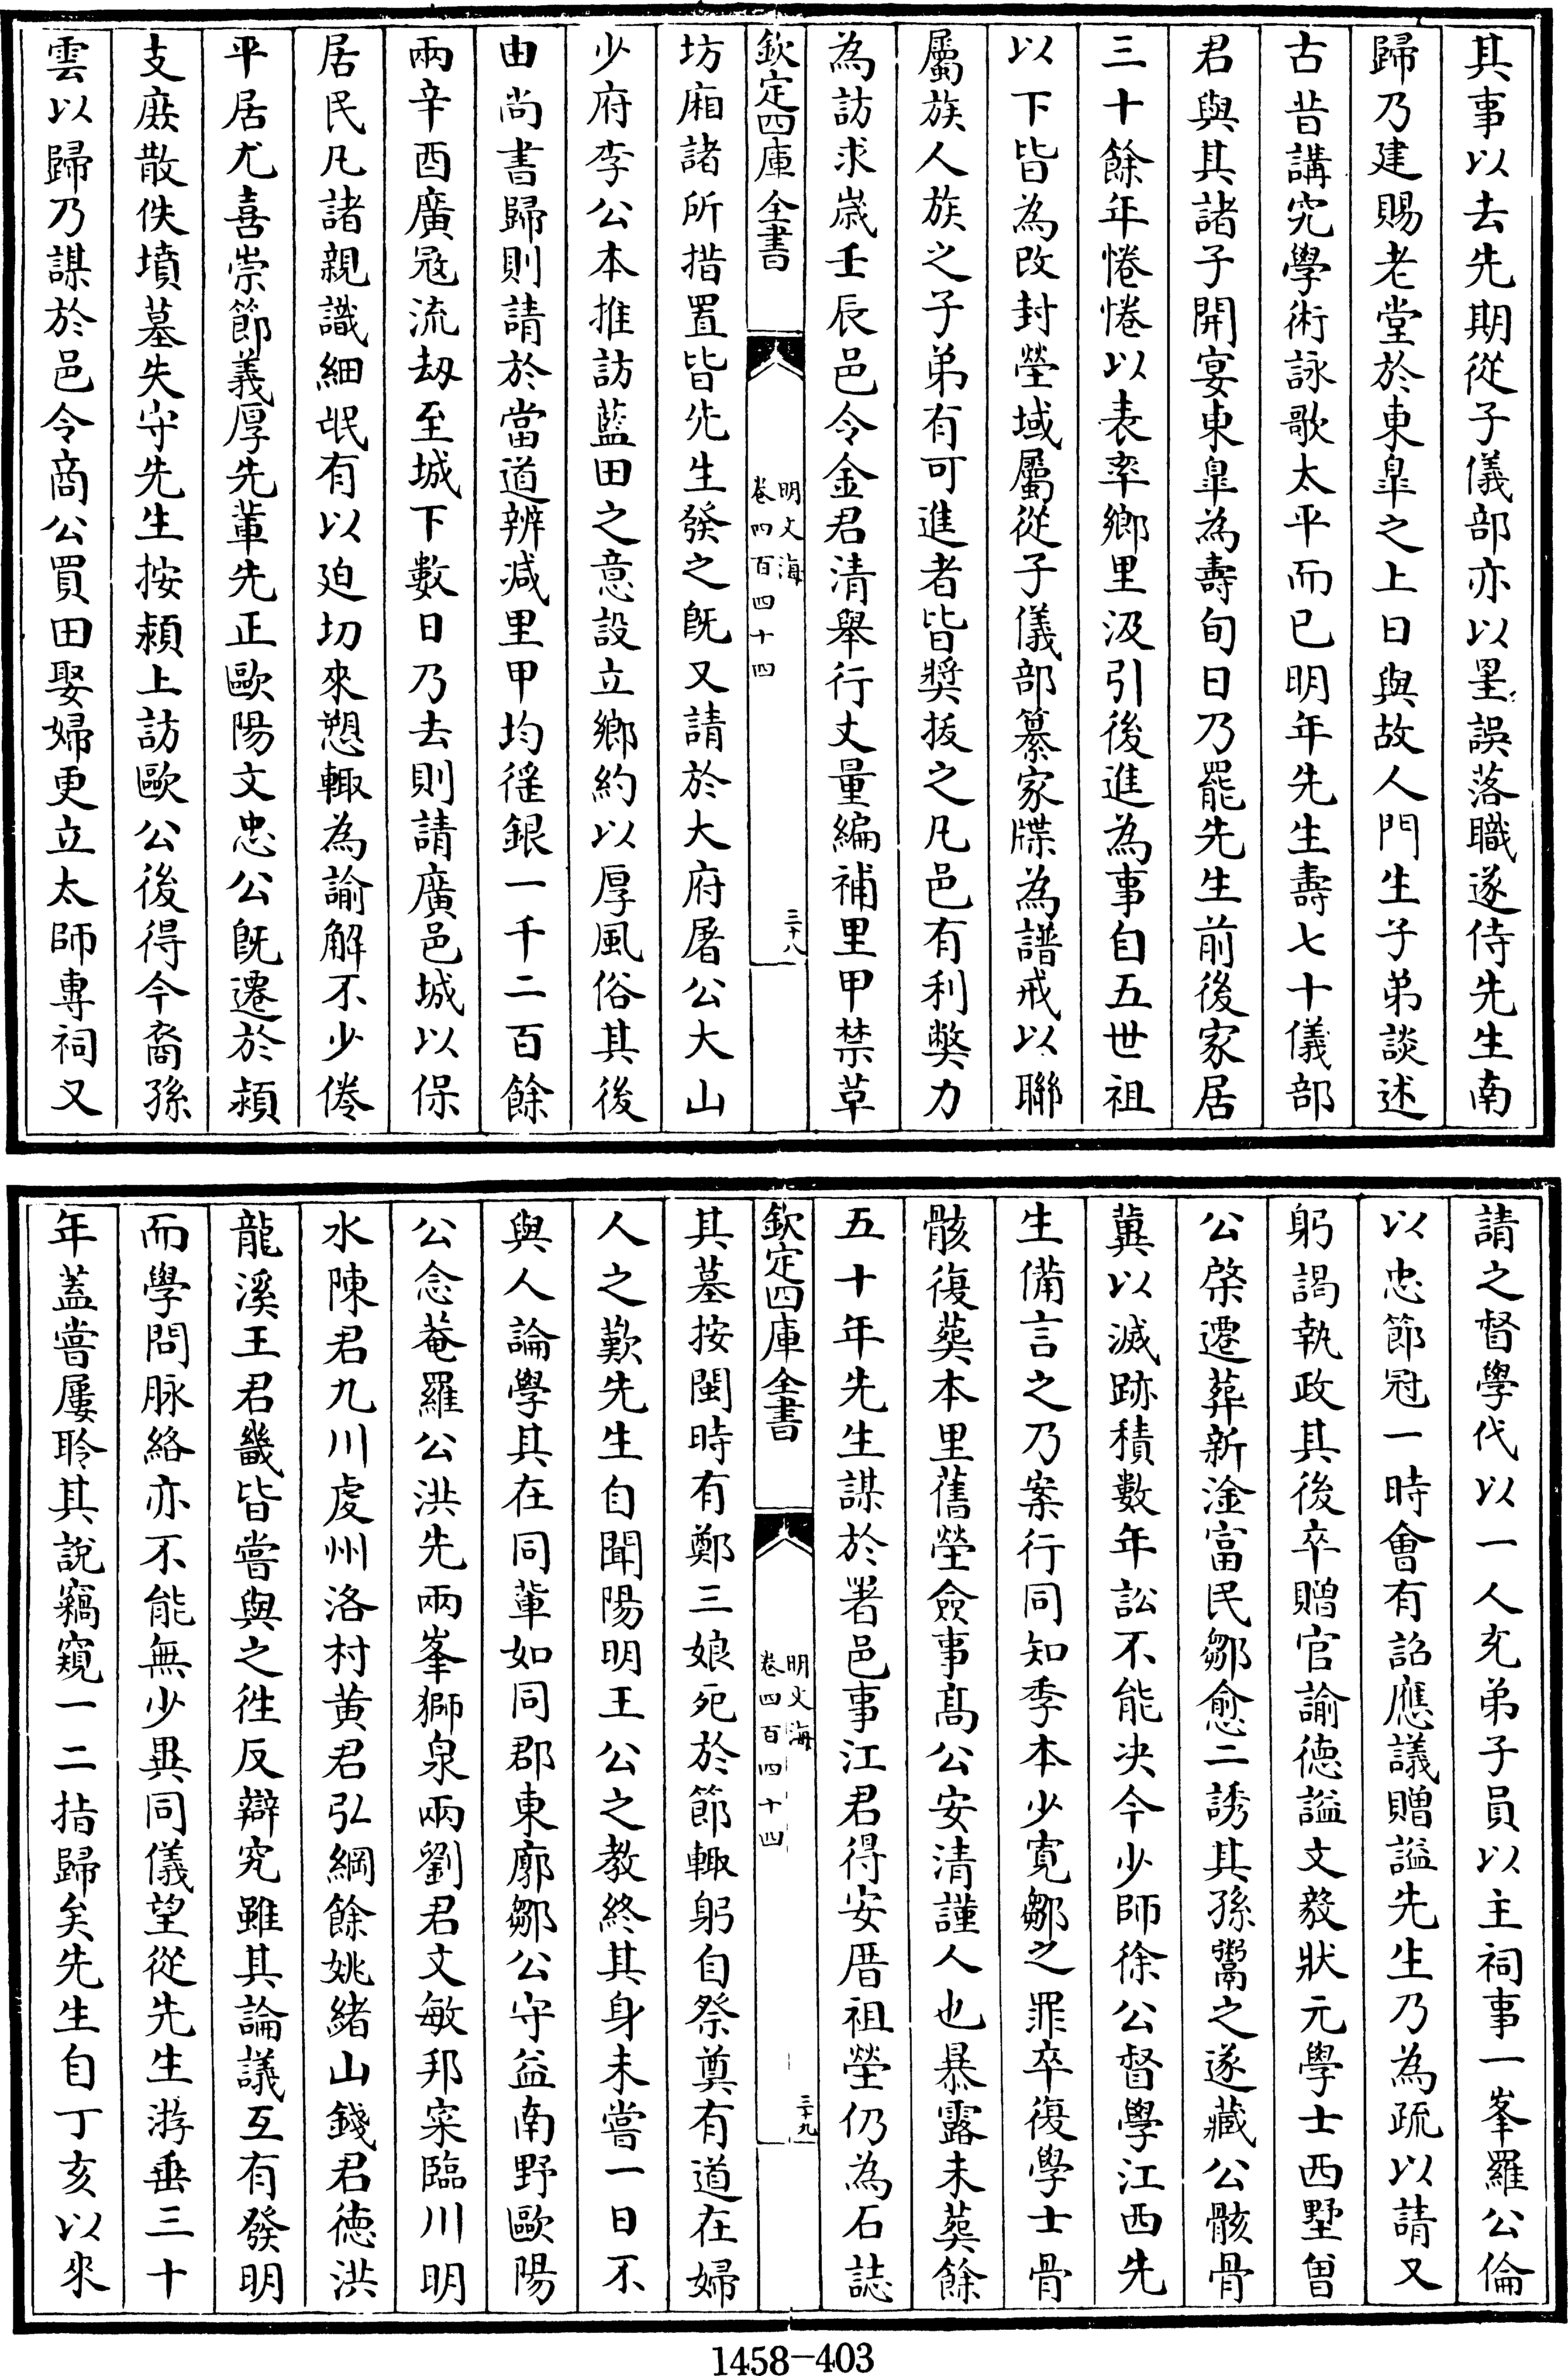 其事以去先期從子儀部亦以星誤落職遂侍先生南
歸乃建賜老堂於東臯之上日與故人門生子弟談述
古昔講究學術詠歌太平而已明年先生壽七十儀部
君與其諸子開宴東臯為壽旬日乃罷先生前後家居
三十餘年惓惓以表率鄉里汲引後進為事自五世祖
以下皆為改封塋域屬從子儀部纂家牒為譜戒以聯
屬族人族之子弟有可進者皆奬拔之凡邑有利弊力
為訪求歲壬辰邑令金君清舉行丈量編補里甲禁草
欽定四庫全書
明文海
卷四百四十四
三十八
坊廂諸所措置皆先生發之既又請於大府屠公大山
少府李公本推訪藍田之意設立鄉約以厚風俗其後
由尚書歸則請於當道辨减里甲均徭銀一千二百餘
兩辛酉廣冦流刼至城下數日乃去則請廣邑城以保
居民凡諸親識細氓有以廹切來愬輙為諭解不少倦
平居尤喜崇節義厚先輩先正歐陽文忠公既遷於潁
支庻散佚墳墓失守先生按潁上訪歐公後得今裔孫
雲以歸乃謀於邑令商公買田娶婦更立太師專祠又
請之督學代以一人充弟子員以主祠事一峯羅公倫
以忠節冠一時會有詔應議贈諡先生乃為疏以請又
躬謁執政其後卒贈官諭徳謚文毅狀元學士西墅曽
公棨遷葬新淦富民鄒愈二誘其孫鬻之遂藏公骸骨
冀以滅跡積數年訟不能决今少師徐公督學江西先
生備言之乃案行同知季本少寛鄒之罪卒復學士骨
骸復葬本里舊塋僉事髙公安清謹人也暴露未葬餘
五十年先生謀於署邑事江君得安厝祖塋仍為石誌
欽定四庫全書
明文海
卷四百四十四
三十九
其墓按閩時有鄭三娘死於節輙躬自祭奠有道在婦
人之歎先生自聞陽明王公之教終其身未嘗一日不
與人論學其在同輩如同郡東廓鄒公守益南野歐陽
公念菴羅公洪先兩峯獅泉兩劉君文敏邦寀臨川明
水陳君九川䖍州洛村黄君弘綱餘姚緒山錢君徳洪
龍溪王君畿皆嘗與之徃反辯究雖其論議互有發明
而學問脉絡亦不能無少異同儀望從先生游垂三十
年蓋嘗屢聆其說竊窺一二指歸矣先生自丁亥以來
1458-403